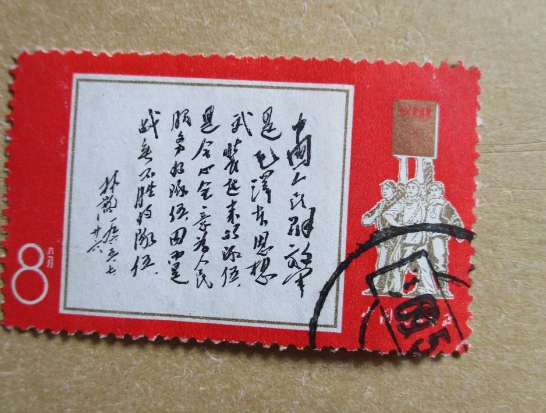 中國人民解放军
是毛澤东思想
武装起来的队伍，
是全心全意为人民
服务的队伍，因而是
战无不胜的队伍。
林彪 一九六五、七、
廿六、
8分